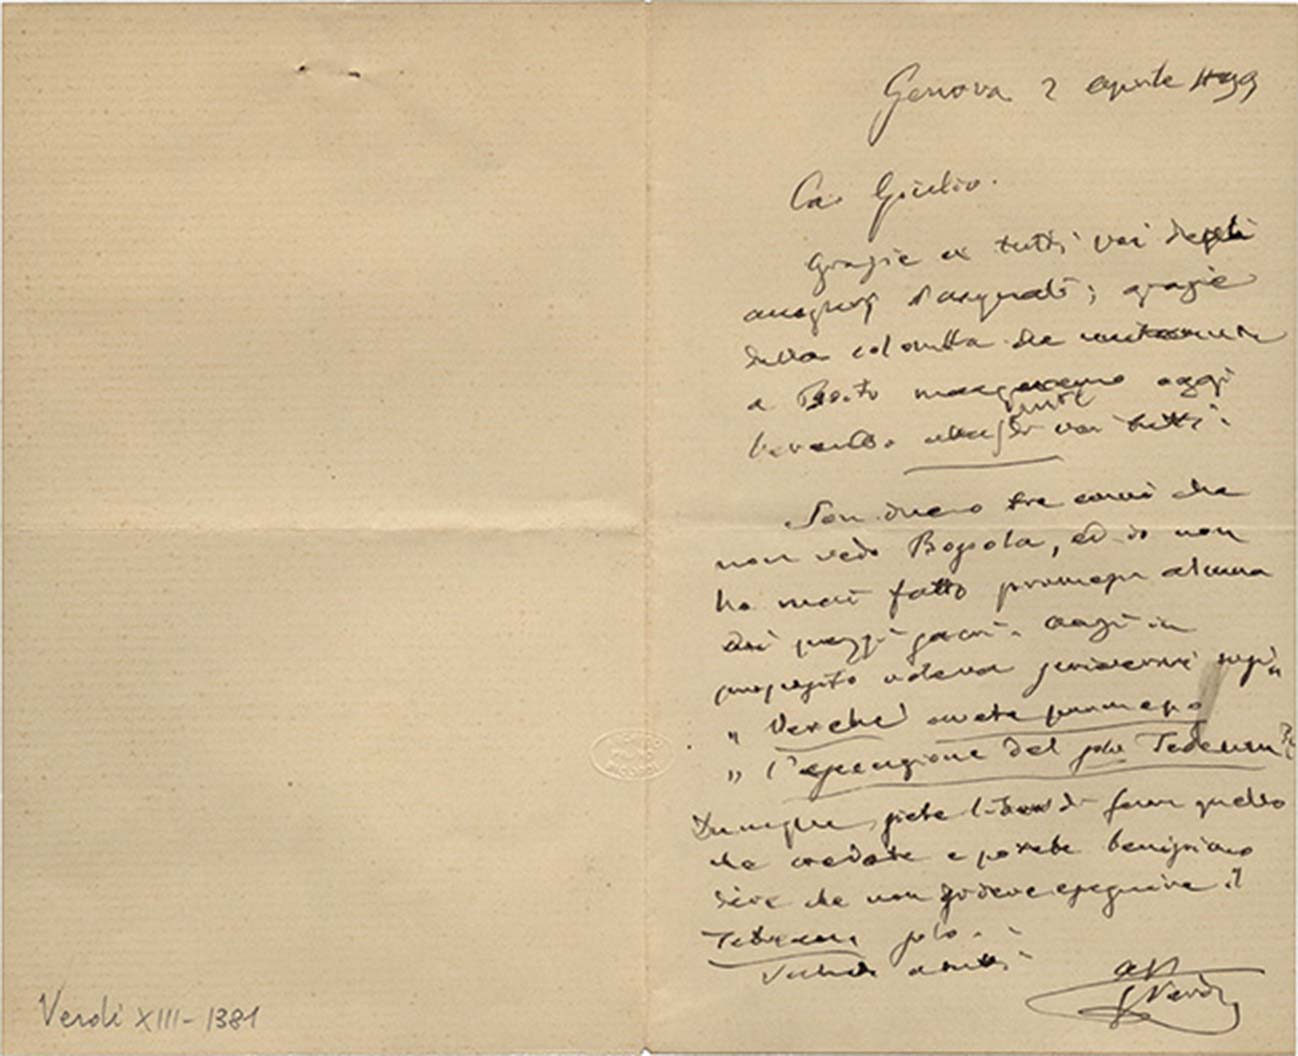 Genova 2 aprile 1899
Car Giulio.
Grazie a tutti voi degli
augurj Pasquali; grazie
della colombetta che
a Boito mangeremo oggi
bevendo alla salute di voi tutti!
Son due o tre anni che
non vedo Bossola, ed io non
ho mai fatto promessa alcuna
dei pezzi sacri. Oggi in
proposito voleva scrivermi
" Verchè avete promesso
" l'esecuzione del solo Tedeum?
Dunque siete libero di fare quello
che credete e potete benissimo
dire che non si deve eseguire il
Tedeum solo.
Saluti a tutti
aff
GVerdi
Verdi XIII-1381